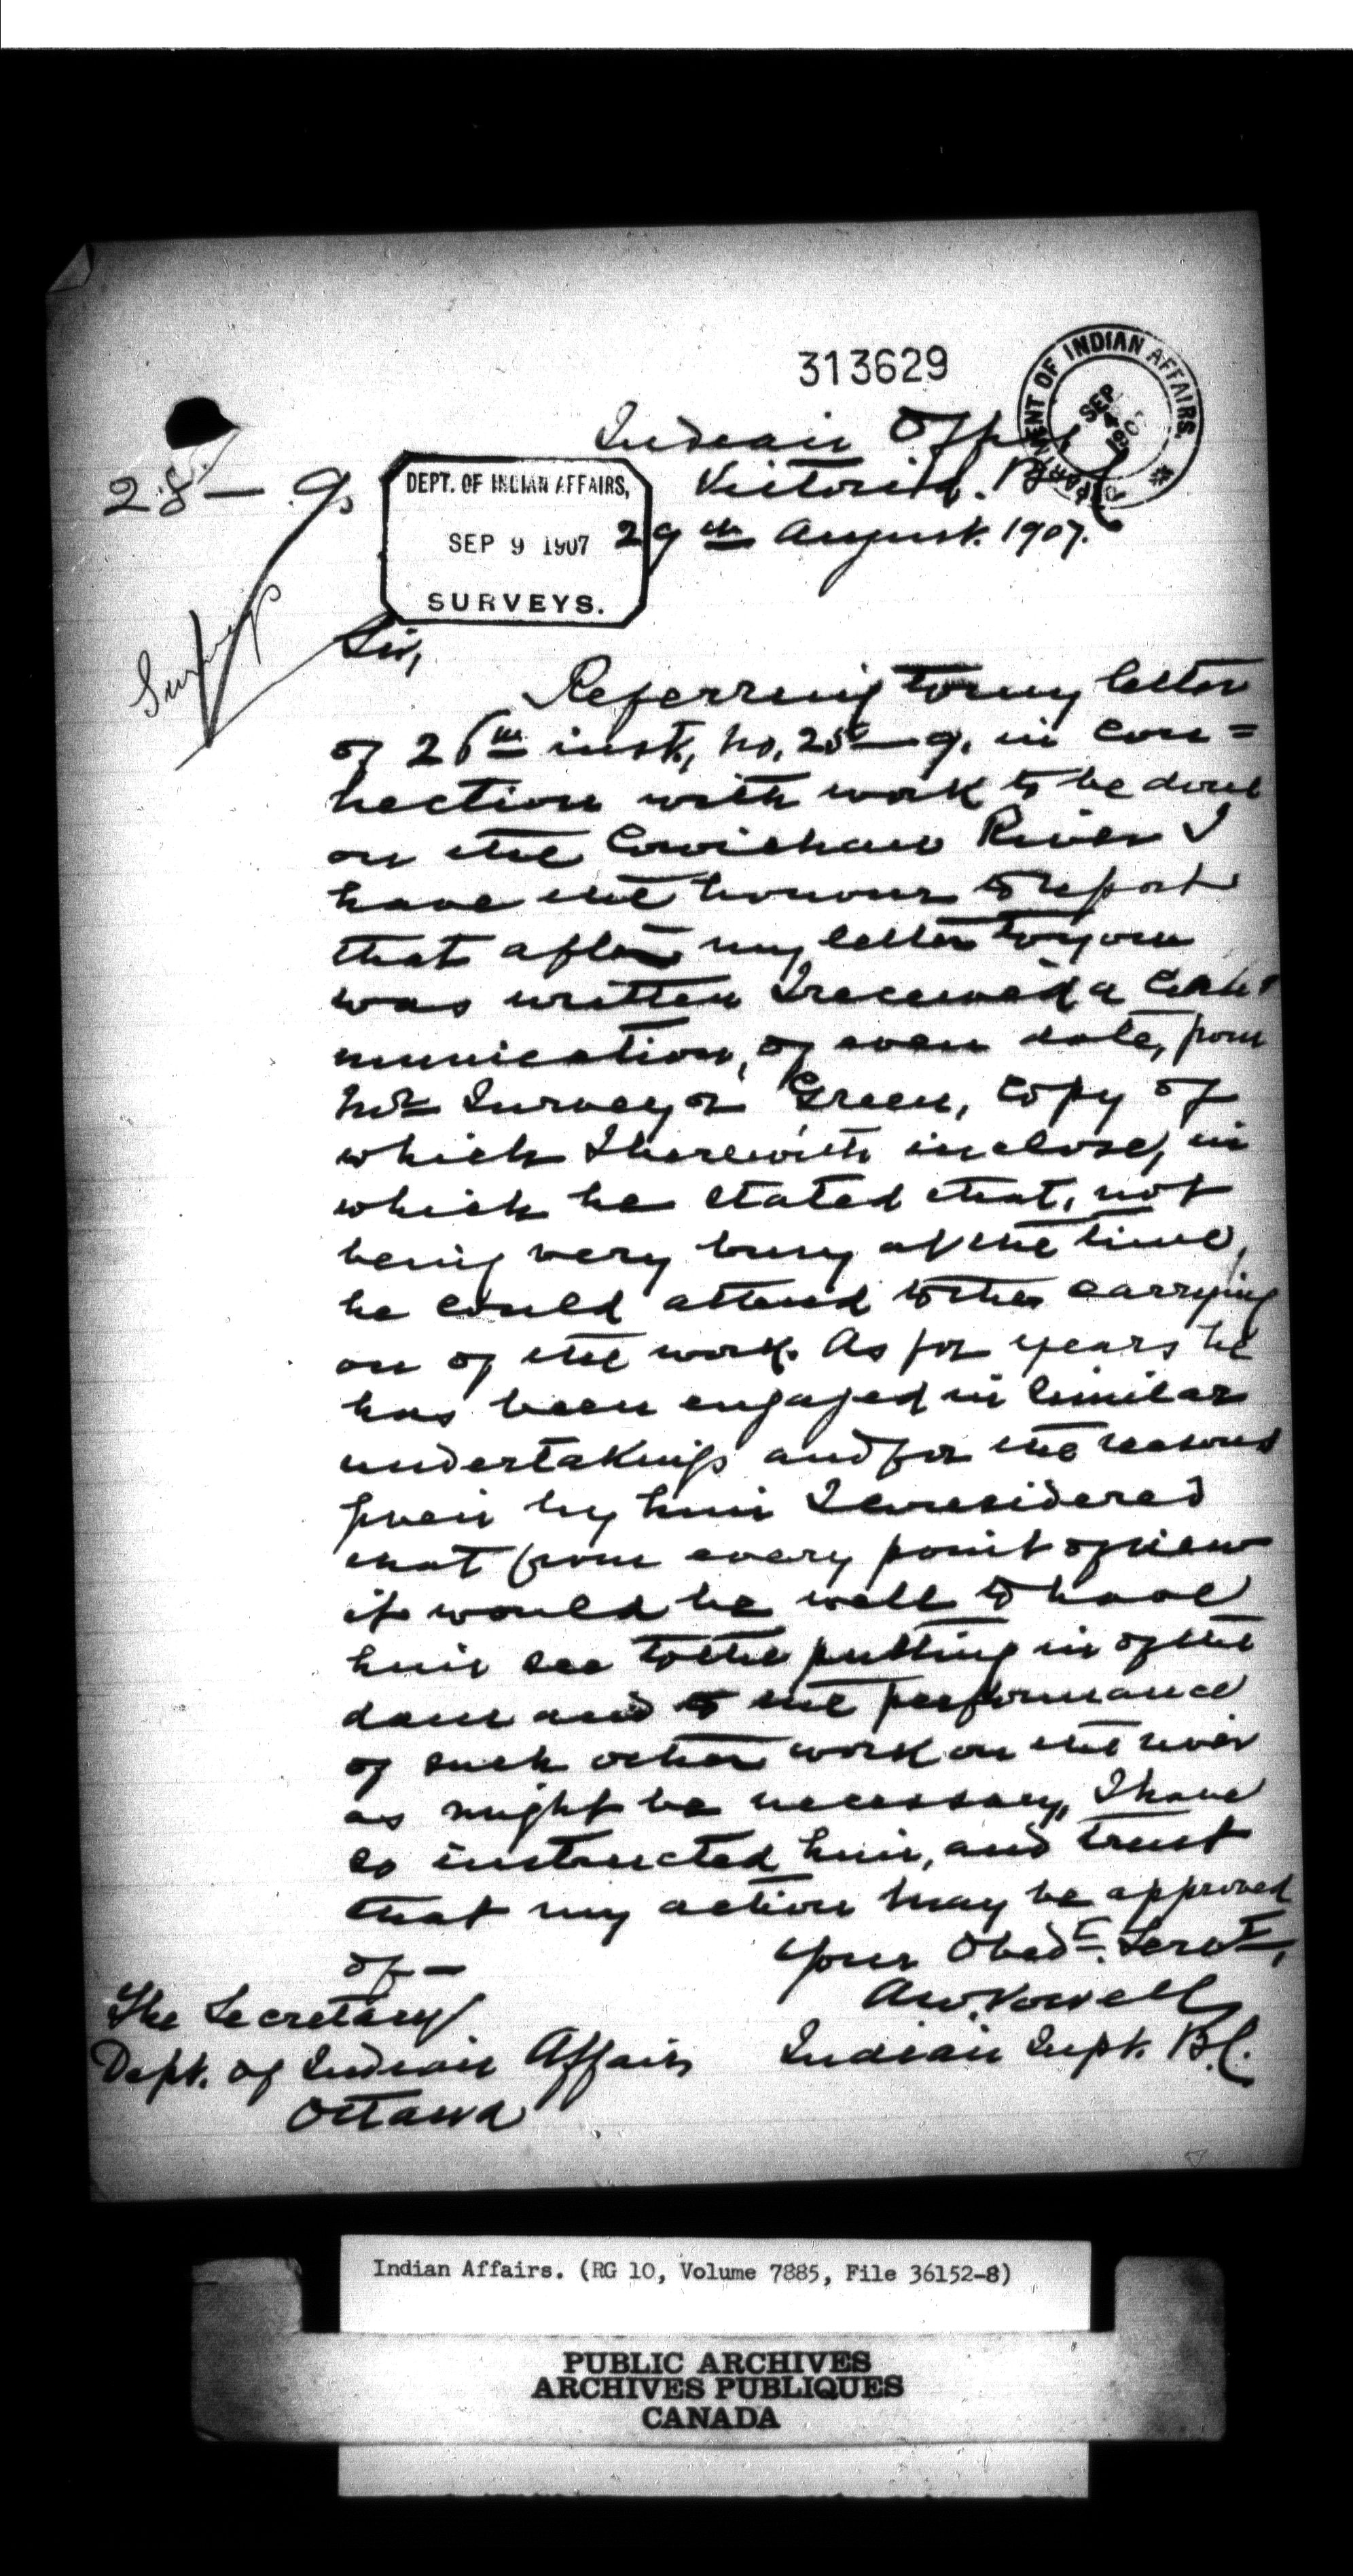 313629
DEPARTMENT OF INDIAN AFFAIRS.
SEP
Indian Office
28-9
Victoria. B.C.
DEPT. OF INDIAN AFFAIRS,
SEP 9 1907
SURVEYS.
29th August. 1907.
Surveys
Sir,
Referring to my letter
of 26th inst., No. 28-9. in con=
nection with work to be done
on the Cowichan River I
have the honour to report
that after my letter to you
was written I received a com=
munication, of even date, from
Mr Surveyor Green, copy of
which I herewith inclose, in
which he stated that, not
being very busy at the time,
he could attend to the carrying
on of the work. As for years he
has been engaged in similar
undertakings and for the reasons
given by him I considered
that from every point of view
it would be well to have
him see to the putting in of the
dam and to the performance
of such other work on the river
as might be necessary, I have
so instructed him, and trust
that my action may be approved
of—
Your Obedt. Servt,
A.W. Vowell
The Secretary
Indian Supt. B.C.
Dept. of Indian Affairs
Ottawa
Indian Affairs. (RG 10, Volume 7885, File 36152-8)
PUBLIC ARCHIVES
ARCHIVES PUBLIQUES
CANADA